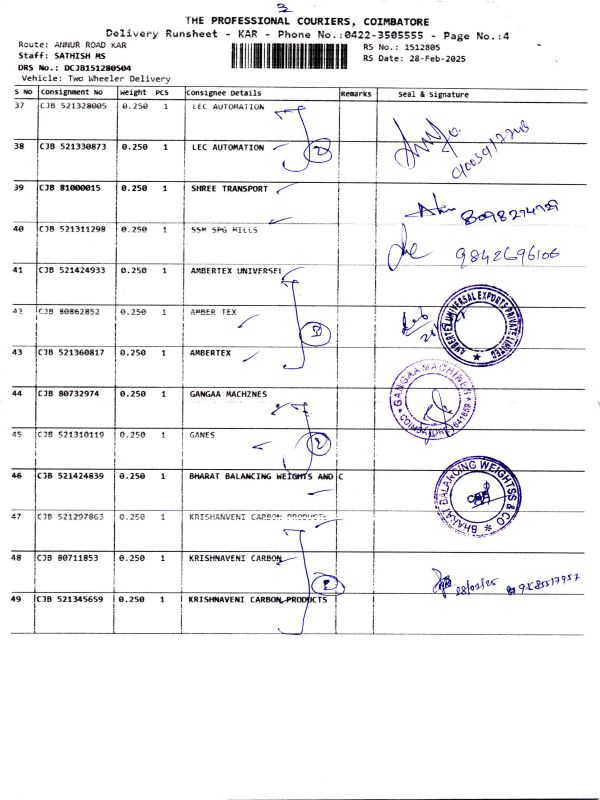 THE PROFESSIONAL COURIERS, COIMBATORE
Delivery Runsheet - KAR - Phone No.:0422-3505555 - Page No.:4
Route: ANNUR ROAD KAR
RS No.: 1512805
Staff: SATHISH MS
RS Date: 28-Feb-2025
DRS No.: DCJB151280504
Vehicle: Two Wheeler Delivery
S No Consignment No Weight PCS Consignee Details Remarks Seal & Signature
37 CJB 521328005 0.250 1 LEC AUTOMATION
38 CJB 521330873 0.250 1 LEC AUTOMATION 2
39 CJB 81000015 0.250 1 SHREE TRANSPORT
40 CJB 521311298 0.250 1 SSM SPG MILLS 9842696106
41 CJB 521424933 0.250 1 AMBERTEX UNIVERSEL
42 CJB 80862852 0.250 1 AMBER TEX
AMBERTEX UNIVERSAL EXPORTS PRIVATE LIMITED
43 CJB 521360817 0.250 1 AMBERTEX
44 CJB 80732974 0.250 1 GANGAA MACHINES
GANGAA MACHINES
COIMBATORE 641659
45 CJB 521310119 0.250 1 GANES 2
46 CJB 521424839 0.250 1 BHARAT BALANCING WEIGHTS AND C
BHARAT BALANCING WEIGHTSS & CO
47 CJB 521297863 0.250 1 KRISHANVENI CARBON PRODUCTS
48 CJB 80711853 0.250 1 KRISHNAVENI CARBON
28/02/25
49 CJB 521345659 0.250 1 KRISHNAVENI CARBON PRODUCTS